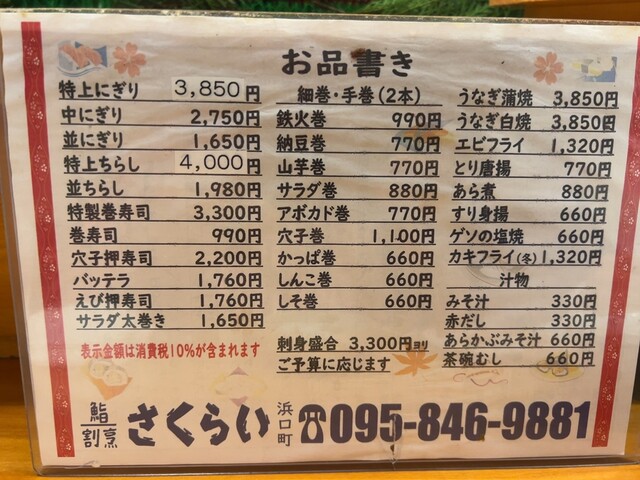 お品書き
特上にぎり 3,850円
中にぎり 2,750円
並にぎり 1,650円
特上ちらし 4,000円
並ちらし 1,980円
特製巻寿司 3,300円
巻寿司 990円
穴子押寿司 2,200円
バッテラ 1,760円
えび押寿司 1,760円
サラダ太巻き 1,650円
表示金額は消費税10%が含まれます
細巻・手巻(2本)
鉄火巻 990円
納豆巻 770円
山芋巻 770円
サラダ巻 880円
アボカド巻 770円
穴子巻 1,100円
かっぱ巻 660円
しんこ巻 660円
しそ巻 660円
刺身盛合 3,300円ヨリ
ご予算に応じます
うなぎ蒲焼 3,850円
うなぎ白焼 3,850円
エビフライ 1,320円
とり唐揚 770円
あら煮 880円
すり身揚 660円
ゲソの塩焼 660円
カキフライ(冬) 1,320円
汁物
みそ汁 330円
赤だし 330円
あらかぶみそ汁 660円
茶碗むし 660円
鮨割烹 さくらい 浜口町 ☎095-846-9881